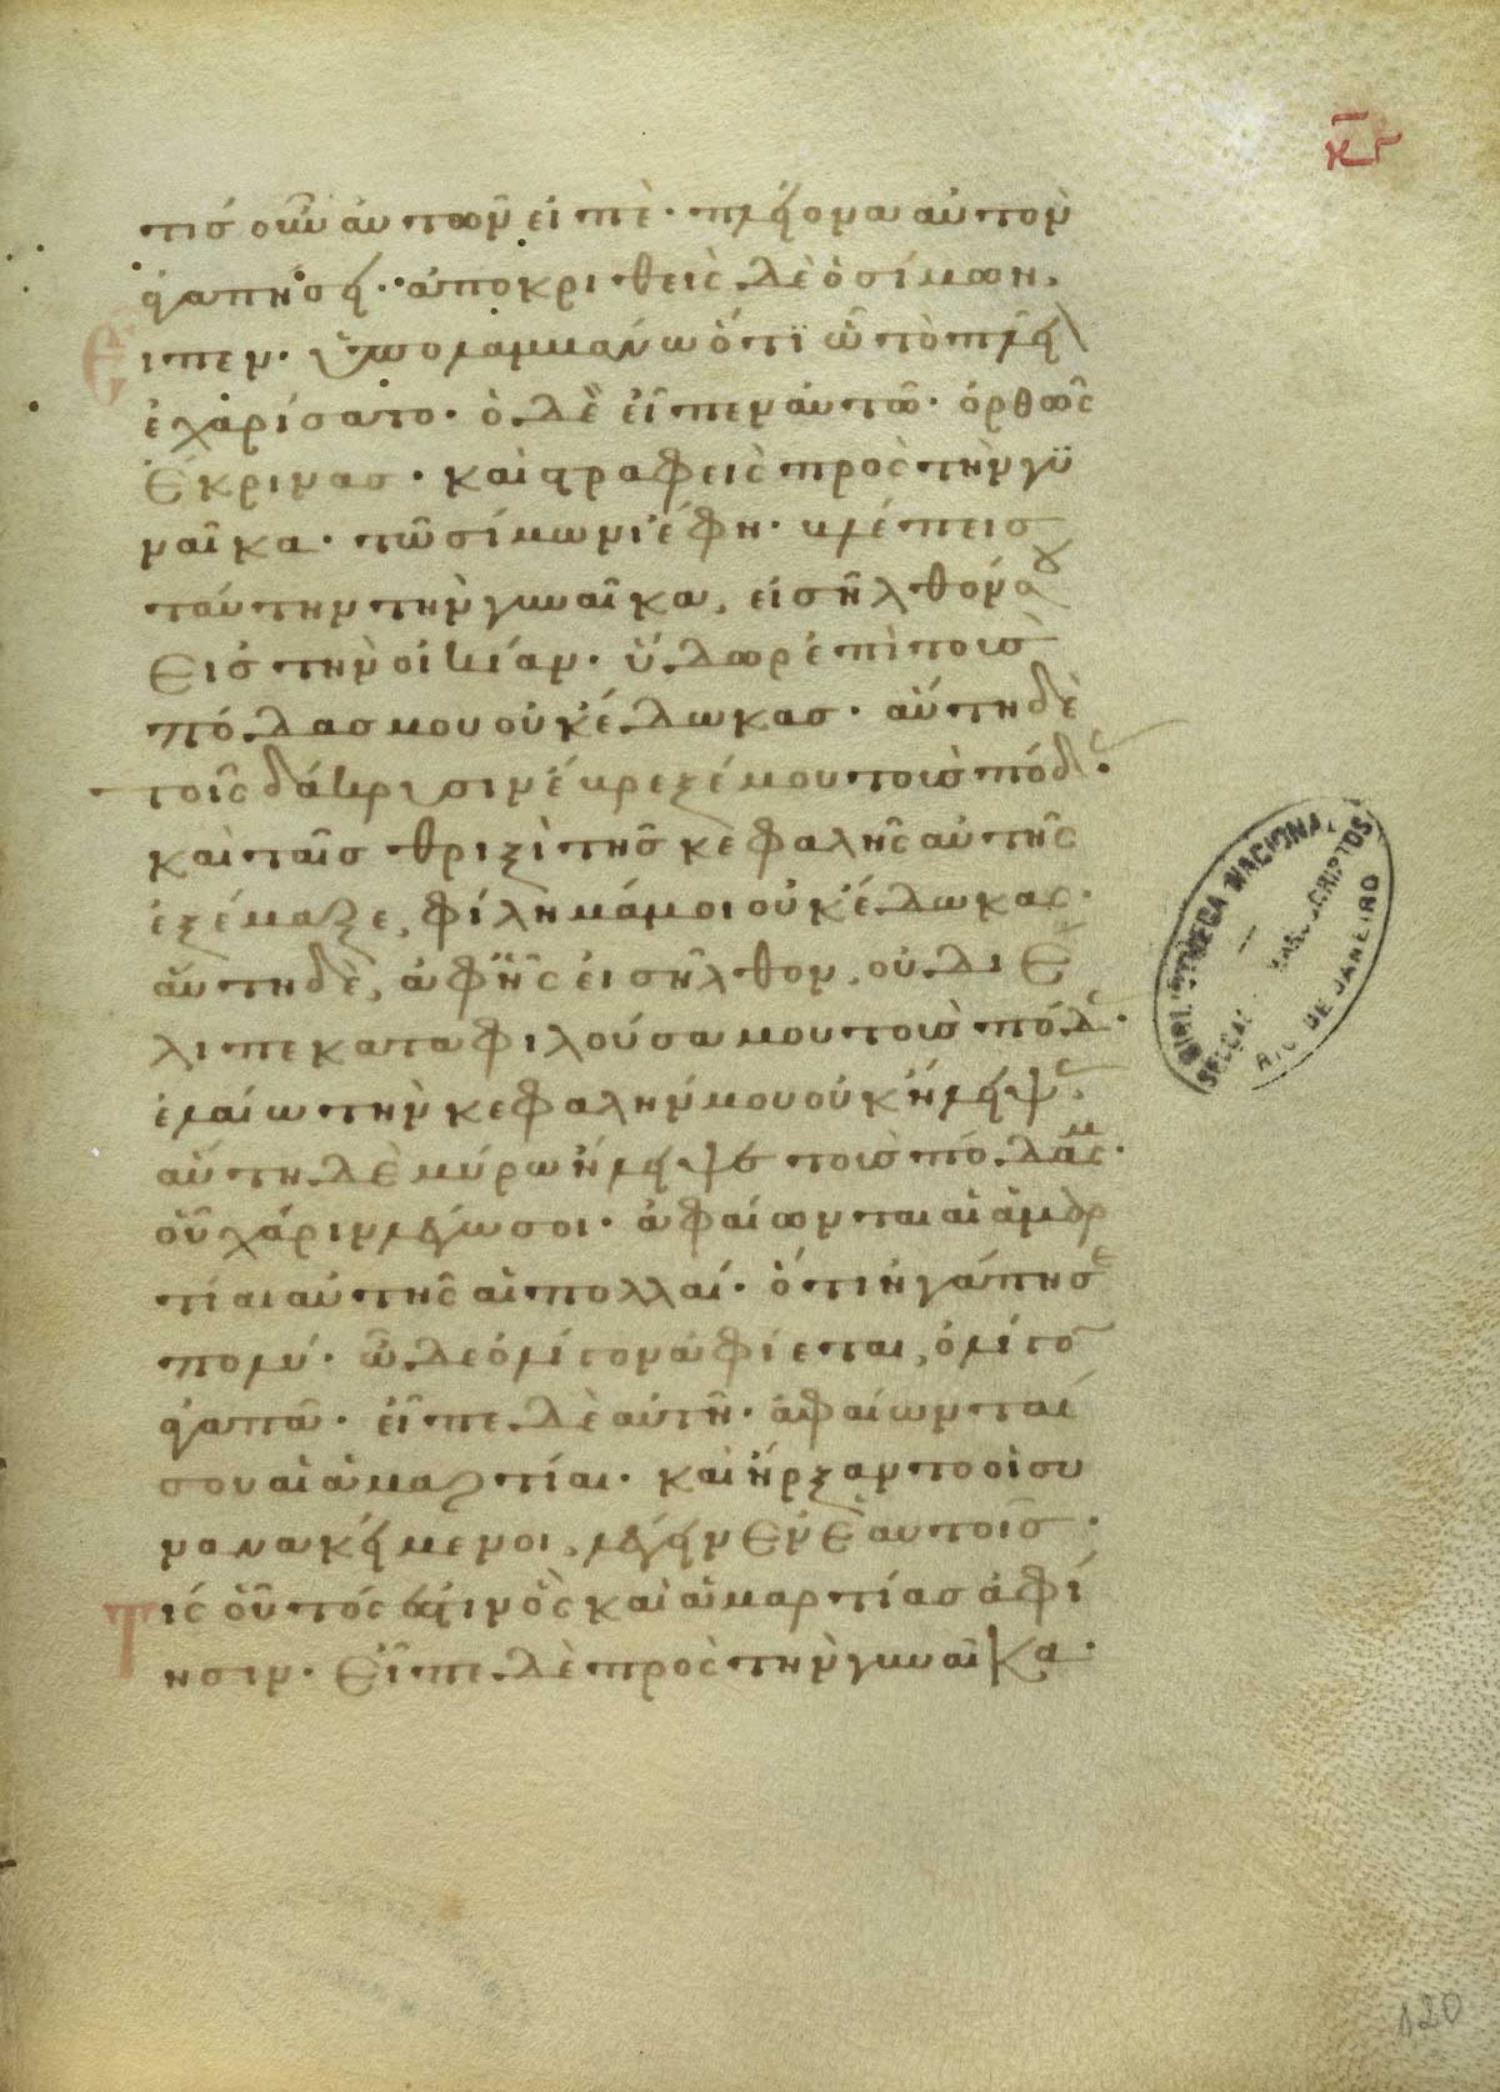 κγ
τισ οὖν ἀυτῶν εἰπὲ· πλεῖονα αὐτὸν
ἀγαπησει· ἀποκριθεὶς δὲ ὁ σίμων.
Ειπεν· ὑπολαμμβάνω ὅτι ὧ τὸ πλεῖ
ἐχαρίσατο· ὁ δὲ εἶπεν ἀυτῶ· ὀρθῶς
ἔκρινας· καὶ στραφεὶς πρὸς τὴν γυ
ναῖκα· τῶ σίμωνι ἔφη· βλέπεις
ταύτην τὴν γυναῖκα, εἰσῆλθόν σου
εἰς τὴν οἰκίαν· ὕδωρ ἐπὶ τοὺς
πόδας μου οὐκ έδωκας· αὕτη δὲ
τοῖς δάκρυσιν ἔβρεξέ μου τοὺς πόδας·
καὶ ταῖς θριξὶ τῆς κεφαλῆς αὐτῆς
ἐξέμαξε, φίλημά μοι οὐκ έδωκας·
αὕτη δὲ, ἀφ ἧς εἰσῆλθον, οὐ διε
λιπε καταφιλοῦσα μου τοὺς πόδας·
ἐλαίω τὴν κεφαλήν μου οὐκ ἤλειψας·
αὕτη δὲ μύρω ἤλειψέ τοὺς πόδας μου·
οὗ χάριν λέγω σοι· ἀφαίωνται αἱ ἁμαρ
τίαι αὐτῆς αἱ πολλαί· ὅτι ἠγάπησε
πολύ· ὧ δὲ ὀλίγον ἀφίεται, ὀλίγον
ἀγαπᾶ· εἶπε δὲ αὐτῆ· ἀφαίωνταί
σου αἱ ἁμαρτίαι· καὶ ἤρξαντο οἱ συ
νανακείμενοι, λέγειν ἐν ἑαυτοῖς·
Τίς οὗτός ἐστιν ὃς καὶ ἁμαρτίας ἀφί
ησιν· Εἶπε δὲ πρὸς τὴν γυναῖκα·
BIBLIOTHECA NACIONAL
MANUSCRIPTOS
RIO DE JANEIRO
120